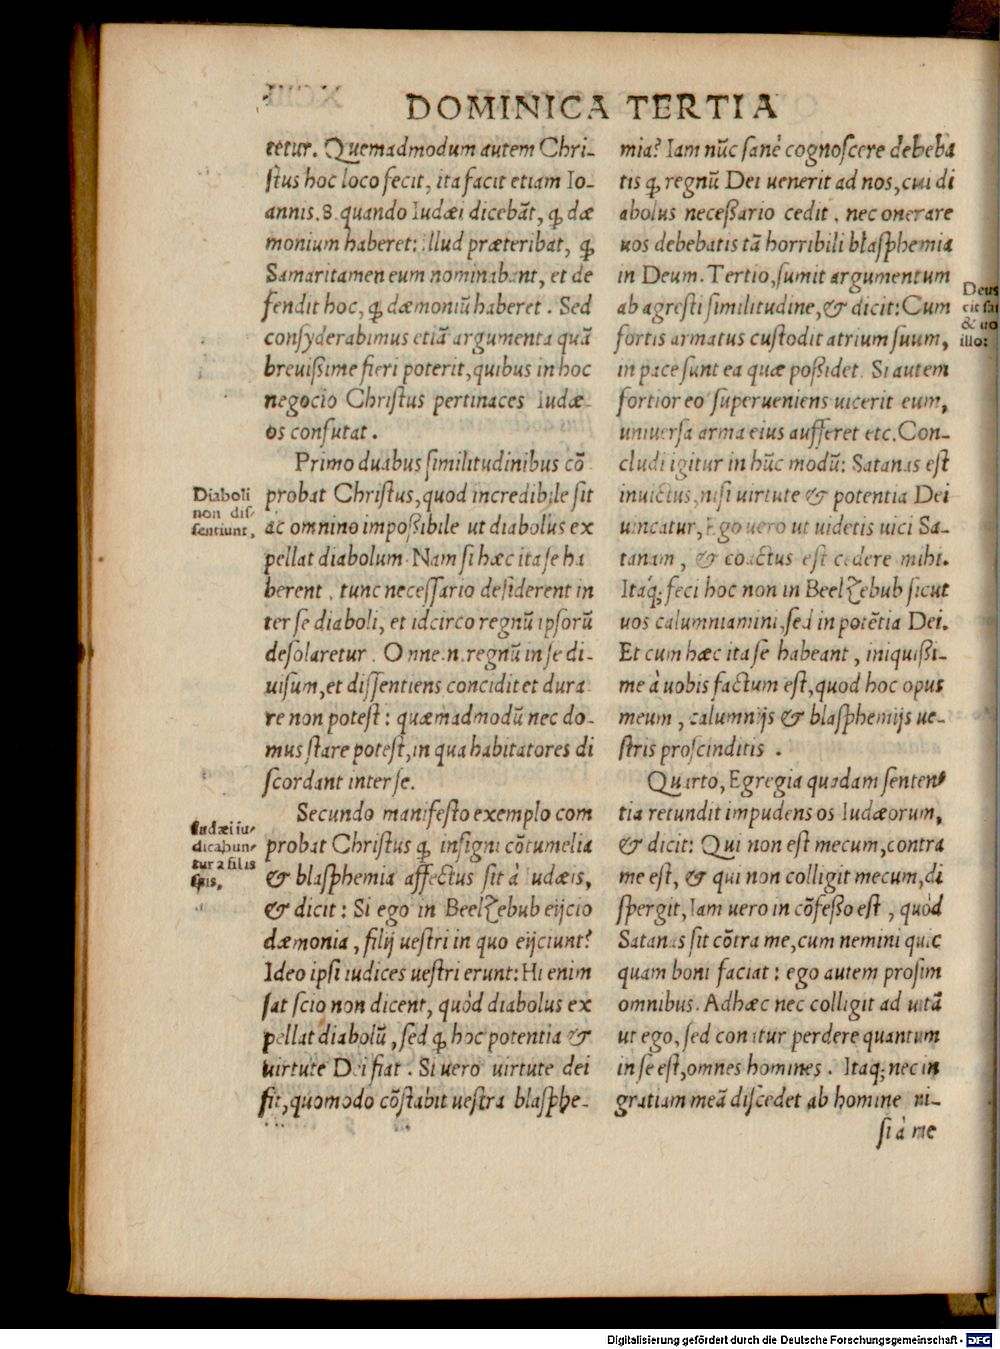 DOMINICA TERTIA
tetur. Quemadmodum autem Chri-
ſtus hoc loco fecit, ita facit etiam Io-
annis.8. quando Iudæi dicebāt, ꝙ dæ
monium haberet: illud præteribat, ꝙ
Samaritamen eum nominabant, et de
fendit hoc, ꝙ dæmoniū haberet. Sed
conſyderabimus etiā argumenta quā
breuißime fieri poterit, quibus in hoc
negocio Chriſtus pertinaces Iudæ-
os confutat.
Primo duabus ſimilitudinibus cō
probat Chriſtus, quod incredibile ſit
ac omnino impoßibile ut diabolus ex
pellat diabolum. Nam ſi hæc ita ſe ha
berent, tunc neceſſario deſiderent in
ter ſe diaboli, et idcirco regnū ipſorū
deſolaretur. Omne.n.regnū in ſe di-
uiſum, et diſſentiens concidit et dura
re non poteſt: quæmadmodū nec do-
mus ſtare poteſt, in qua habitatores di
ſcordant inter ſe.
Secundo manifeſto exemplo com
probat Chriſtus ꝙ inſigni cōtumelia
& blaſphemia affectus ſit à Iudæis,
& dicit: Si ego in Beelzebub eijcio
dæmonia, filij ueſtri in quo eijciunt?
Ideo ipſi iudices ueſtri erunt: Hi enim
ſat ſcio non dicent, quòd diabolus ex
pellat diabolū, ſed ꝙ hoc potentia &
uirtute Dei fiat. Si uero uirtute dei
fit, quomodo cōſtabit ueſtra blaſphe-
Diaboli
non diſ-
ſentiunt,
Iudæi iu-
dicabun-
tur a filiis
ſuis,
mia? Iam nūc ſanè cognoſcere debeba
tis ꝙ regnū Dei uenerit ad nos, cui di
abolus neceßario cedit, nec onerare
uos debebatis tā horribili blaſphemia
in Deum. Tertio, ſumit argumentum
ab agreſti ſimilitudine, & dicit: Cum
fortis armatus cuſtodit atrium ſuum,
in pace ſunt ea quæ poßidet. Si autem
fortior eo ſuperueniens uicerit eum,
uniuerſa arma eius aufferet etc. Con-
cludi igitur in hūc modū: Satanas eſt
inuictus, niſi uirtute & potentia Dei
uincatur, Ego uero ut uidetis uici Sa-
tanam, & coactus eſt cedere mihi.
Itaq; feci hoc non in Beelzebub ſicut
uos calumniamini, ſed in potētia Dei.
Et cum hæc ita ſe habeant, iniquißi-
me à uobis factum eſt, quod hoc opus
meum, calumnijs & blaſphemijs ue-
ſtris proſcinditis.
Quarto, Egregia quadam ſenten-
tia retundit impudens os Iudæorum,
& dicit: Qui non eſt mecum, contra
me eſt, & qui non colligit mecum, di
ſpergit, Iam uero in cōfeßo eſt, quòd
Satanas ſit cōtra me, cum nemini quic
quam boni faciat: ego autem proſim
omnibus. Adhæc nec colligit ad uitā
ut ego, ſed conatur perdere quantum
in ſe eſt, omnes homines. Itaq; nec in
gratiam meā diſcedet ab homine ni-
ſi à me
Deus
& uo
illo:
Digitalisierung gefördert durch die Deutsche Forschungsgemeinschaft - DFG